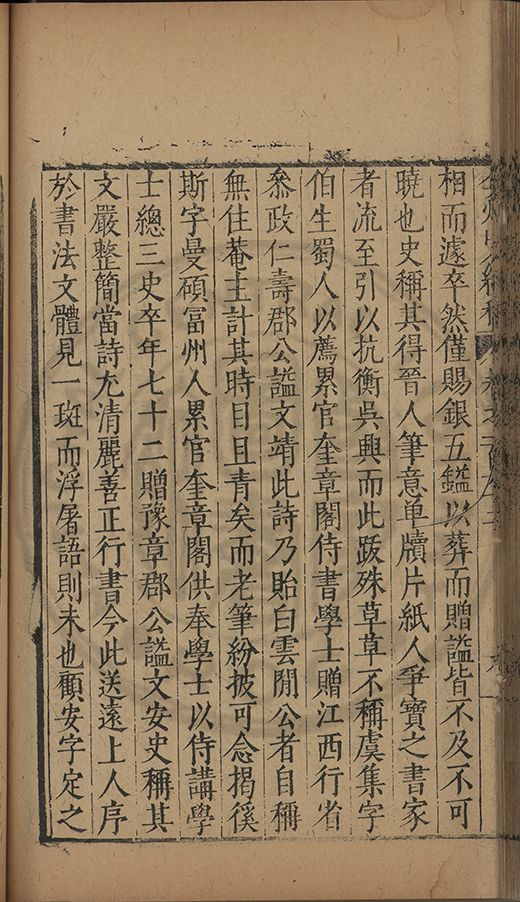 相而遽卒然僅賜銀五鎰以葬而贈謚皆不及不可
曉也史稱其得晉人筆意单牘片紙人爭寶之書家
者流至引以抗衡吳興而此跋殊草草不稱虞集字
伯生蜀人以薦累官奎章閣侍書學士贈江西行省
叅政仁壽郡公謚文靖此詩乃貽白雲閒公者自稱
無住菴主計其時目且青矣而老筆紛披可念揭徯
斯字曼碩冨州人累官奎章閣供奉學士以侍講學
士總三史卒年七十二贈豫章郡公謚文安史稱其
文嚴整簡當詩尤清麗善正行書今此送遠上人序
於書法文體見一斑而浮屠語則未也顧安字定之